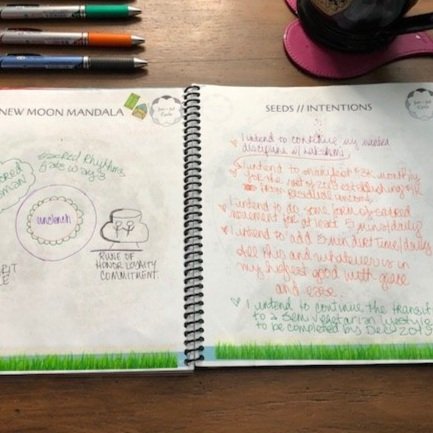 NEW MOON MANDALA
Sacred Rhythms
Gateways
unclench
RUNE OF
HONOR LOYALTY
COMMITMENT
SEEDS // INTENTIONS
I intend to continue my
discipline w/ Lakshmi
I intend to manifest monthly
for the rest of establishing
residual income.
I intend to do some form of sacred
movement for at least 5 mins/daily
I intend to add 5 min dirt time/daily
all this and whatever is in
my highest good with grace
and ease.
I intend to continue the transit
to a semi vegetarian lifestyle
to be completed by Dec